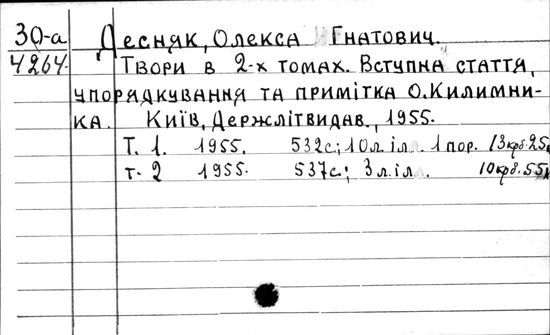 30-а Десняк, Олекса Гнатович.
4264. Твори в 2-х томах. Вступна стаття,
упорядкування та примітка О. Килимни-
ка. Київ, Держлітвидав, 1955.
Т. 1. 1955. 532с; 10 л. іл. 1 пор. 13крб.25к
т. 2 1955. 537с; 3 л. іл. 10крб.55к